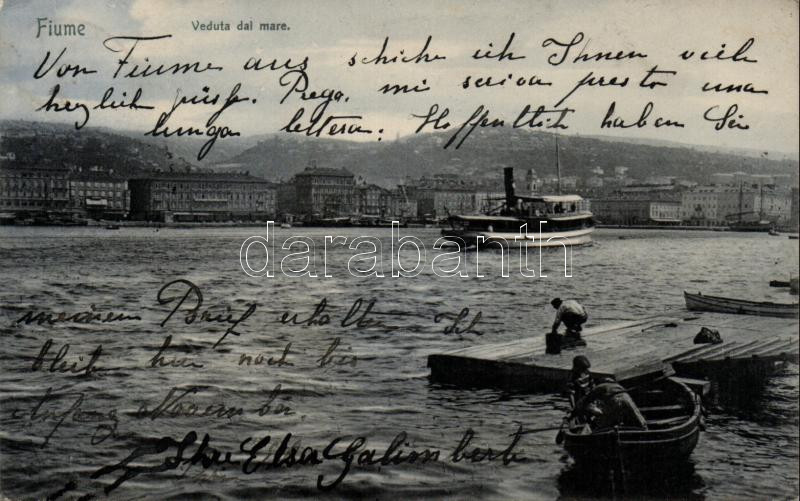 Fiume
Veduta dal mare.
Von Fiume aus schicke ich Ihnen viele
herzlich Grüsse. Prego, mi scriva presto una
lunga lettera. Hoffentlich haben Sie
darabanth
meinen Brief erhalten. Ich
bleib hier noch bis
Anfang November.
Ihre Elsa Galimberti